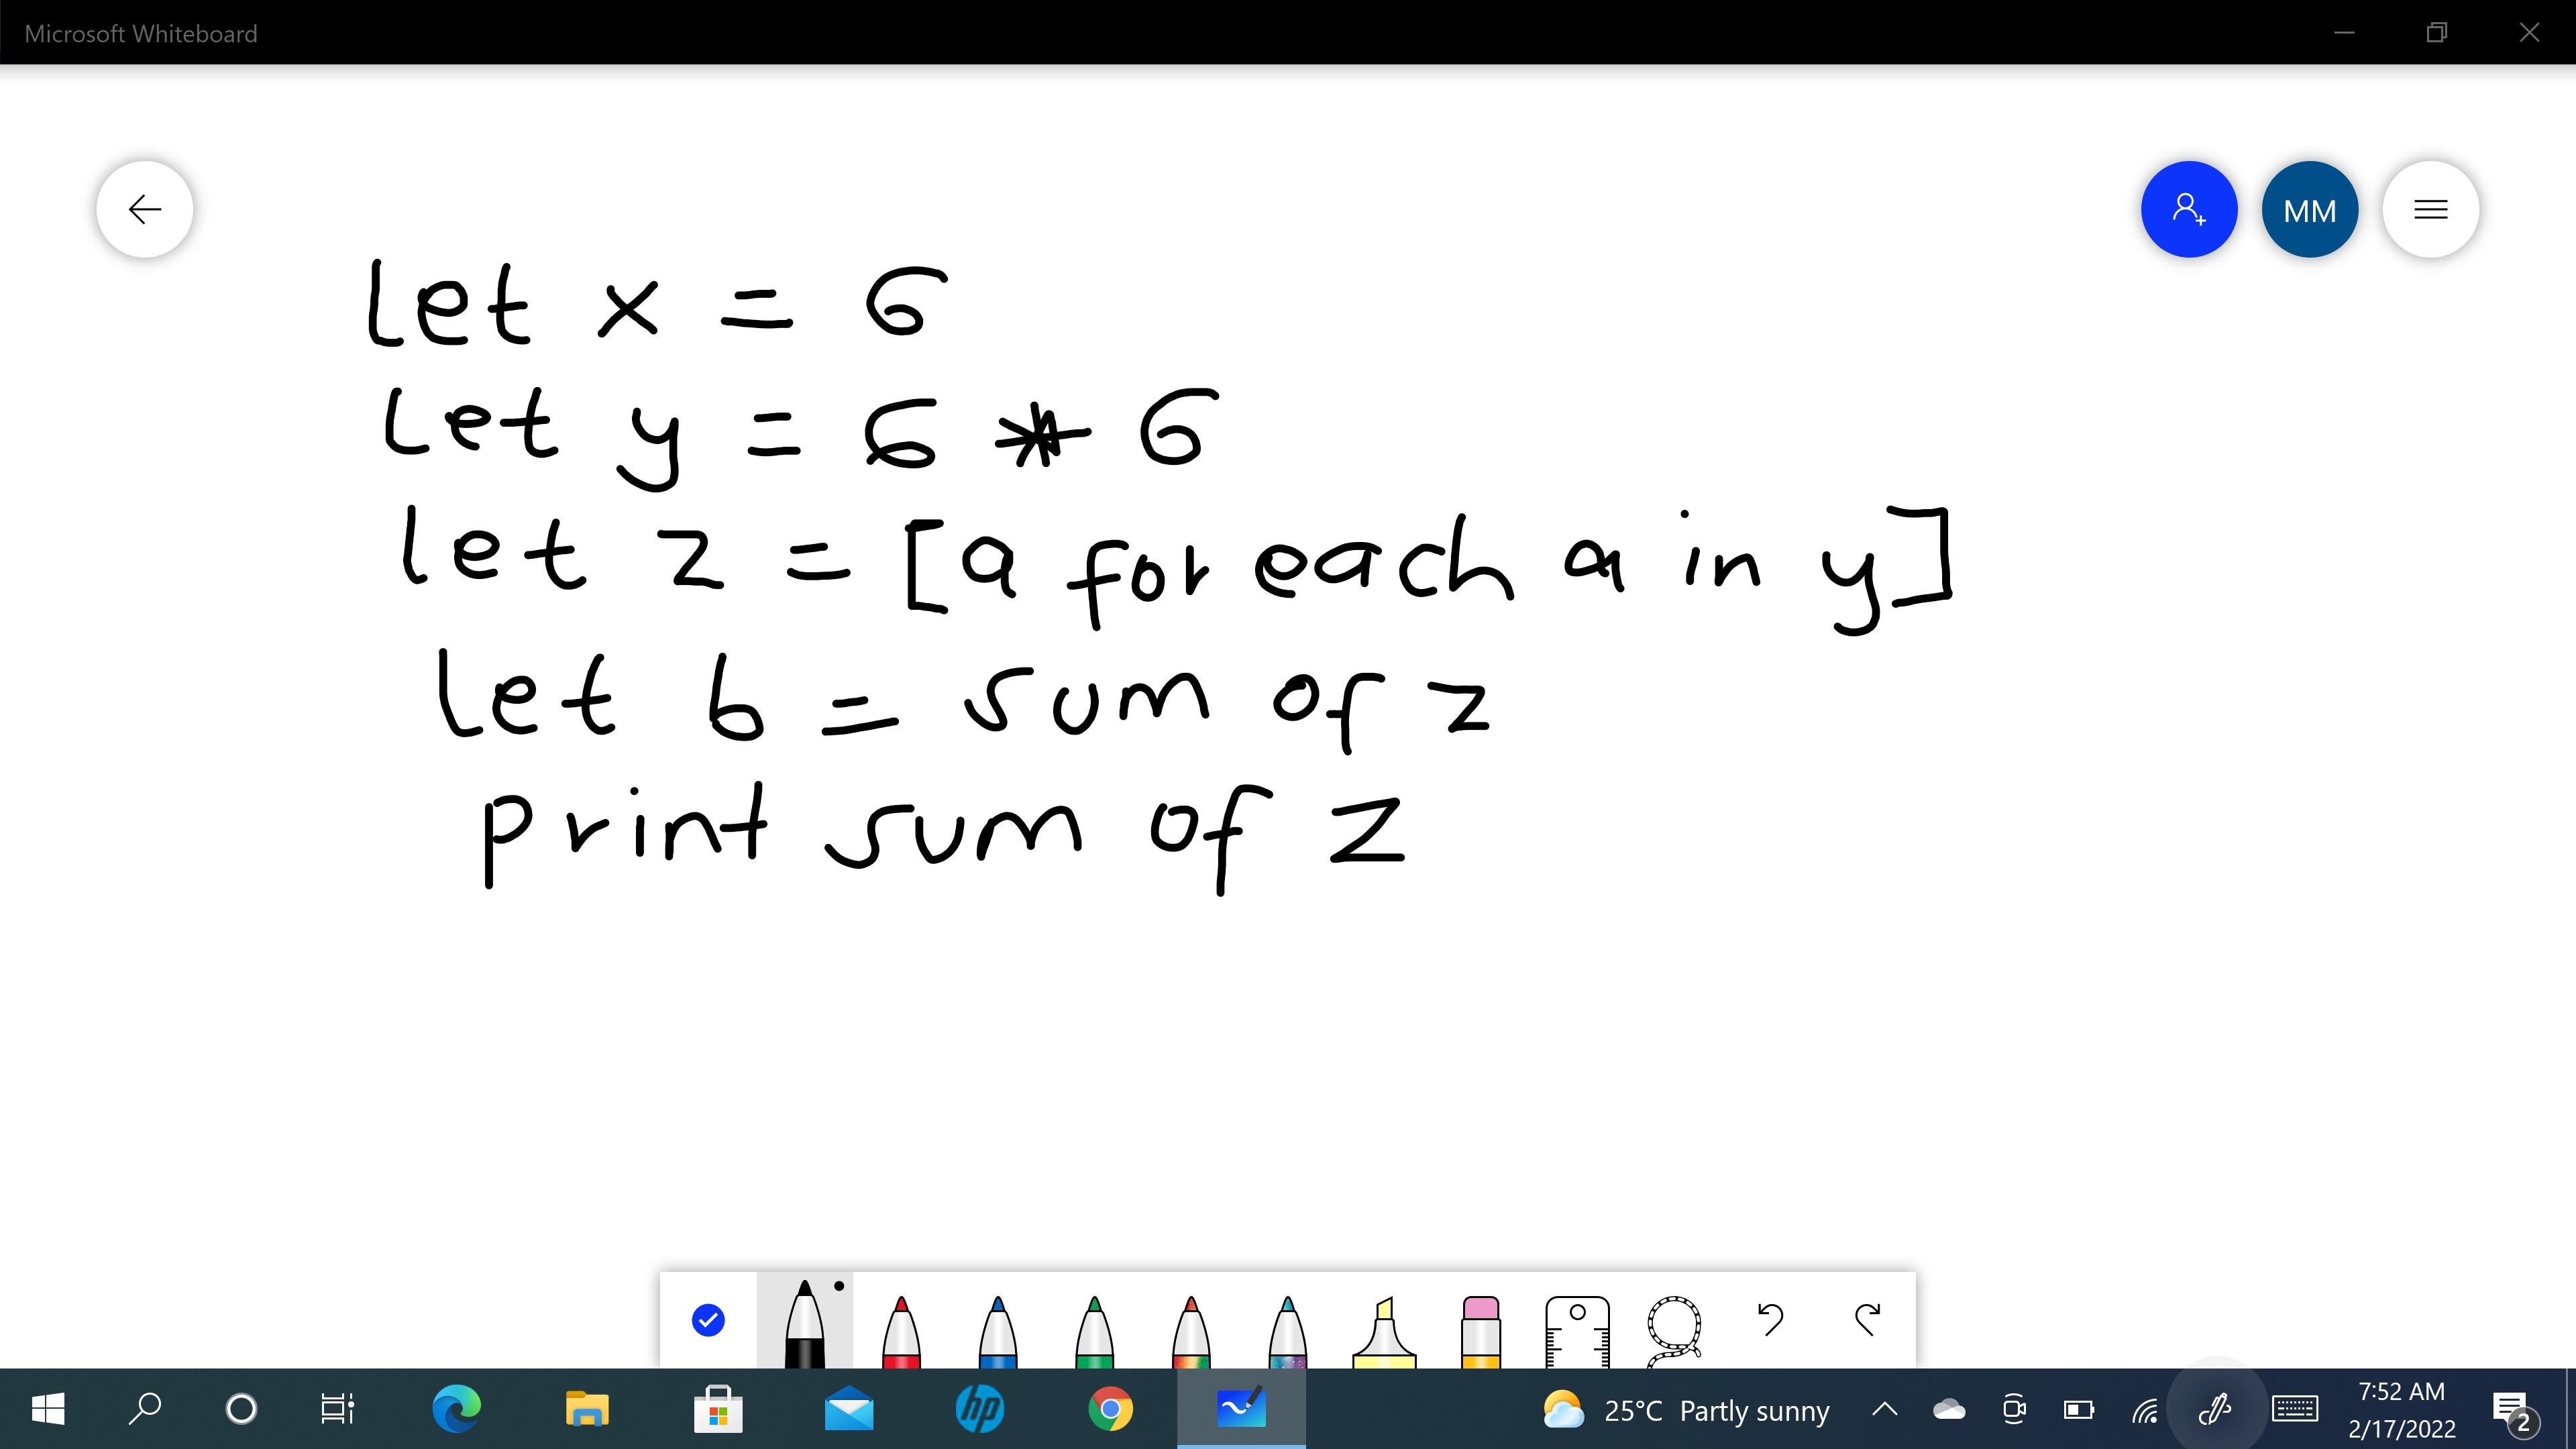 Microsoft Whiteboard
MM
let x = 6
let y = 6 * 6
let z = [a for each a in y]
let b = sum of z
print sum of z
hp
25°C Partly sunny
7:52 AM
2/17/2022
2